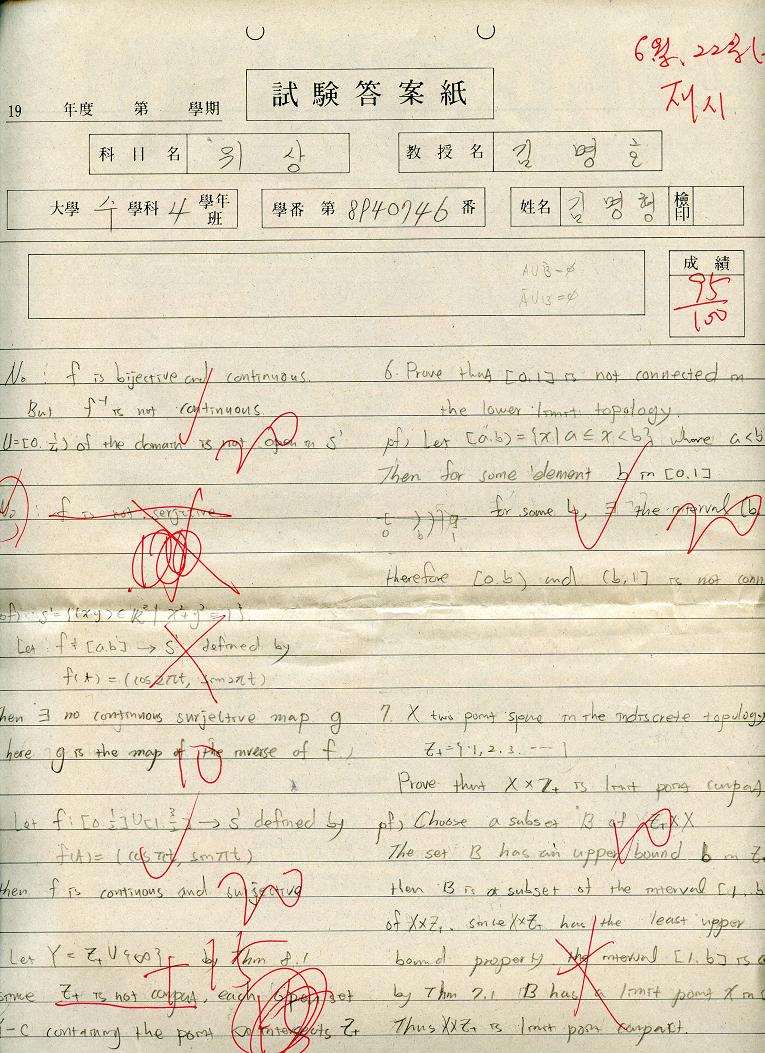 6월, 22일
재시
19 年度 第 學期
試驗答案紙
科目名 위상
教授名 김명호
大學 수 學科 4 學年 班
學番 第 8940746 番
姓名 김명형 檢印
A∪B=∅
A∪B=∅
成績
95
100
No : f is bijective and continuous.
But f⁻¹ is not continuous.
U=[0, 1/4) of the domain is not open in S'
20
No : f is not surjective
pf) S'={(x,y)∈R²| x²+y²=1}.
Let f : [a.b] → S' defined by
f(t) = (cos 2πt, sin 2πt)
hen ∃ no continuous surjective map g
here g is the map of the inverse of f.
10
Let f: [0. 1/2]∪[1. 3/2] → S' defined by
f(t) = (cos πt, sin πt)
then f is continous and surjective
20
Let Y = Z₊ ∪ {∞} by Thm 8.1
+15
since Z₊ is not compact, each open set
Y-C containing the point ∞ intersects Z₊
6. Prove that [0.1] is not connected in
the lower limit topology.
pf) Let [a.b) = {x| a ≤ x < b} where a<b
Then for some element b in [0.1]
0 b 1
for some ∃ the interval [b
20
therefore [0.b) and (b,1] is not conn
7. X two point space in the indiscrete topology
Z₊={1, 2, 3. ---}
Prove that X × Z₊ is limit point compact
pf) Choose a subset B of Z₊×X
10
The set B has an upper bound b in Z
then B is a subset of the interval [1, b
of X×Z₊. since X×Z₊ has the least upper
bound property the interval [1, b] is c
by Thm 7.1 B has a limit point x in
Thus X×Z₊ is limit point compact.